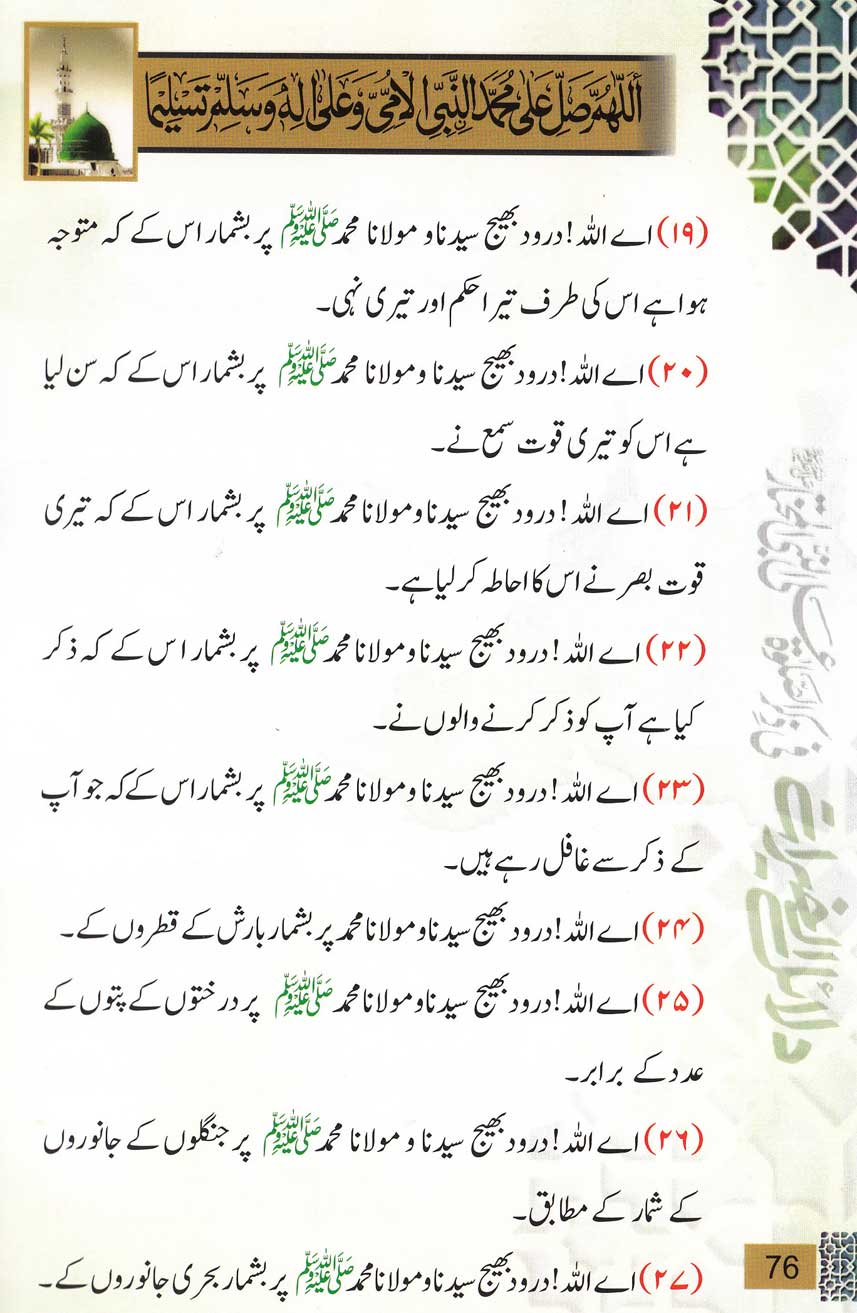 اَللّٰهُمَّ صَلِّ عَلٰى مُحَمَّدِ النَّبِيِّ الْاُمِّيِّ وَعَلٰى اٰلِهٖ وَسَلِّمْ تَسْلِيْمًا
(۱۹) اے اللہ! درود بھیج سیدنا و مولانا محمد صَلَّى اللهُ عَلَيْهِ وَسَلَّمَ پر بشمار اس کے کہ متوجہ
ہوا ہے اس کی طرف تیرا حکم اور تیری نہی۔
(۲۰) اے اللہ! درود بھیج سیدنا و مولانا محمد صَلَّى اللهُ عَلَيْهِ وَسَلَّمَ پر بشمار اس کے کہ سن لیا
ہے اس کو تیری قوت سمع نے۔
(۲۱) اے اللہ! درود بھیج سیدنا و مولانا محمد صَلَّى اللهُ عَلَيْهِ وَسَلَّمَ پر بشمار اس کے کہ تیری
قوت بصر نے اس کا احاطہ کر لیا ہے۔
(۲۲) اے اللہ! درود بھیج سیدنا و مولانا محمد صَلَّى اللهُ عَلَيْهِ وَسَلَّمَ پر بشمار اس کے کہ ذکر
کیا ہے آپ کو ذکر کرنے والوں نے۔
(۲۳) اے اللہ! درود بھیج سیدنا و مولانا محمد صَلَّى اللهُ عَلَيْهِ وَسَلَّمَ پر بشمار اس کے کہ جو آپ
کے ذکر سے غافل رہے ہیں۔
(۲۴) اے اللہ! درود بھیج سیدنا و مولانا محمد پر بشمار بارش کے قطروں کے۔
(۲۵) اے اللہ! درود بھیج سیدنا و مولانا محمد صَلَّى اللهُ عَلَيْهِ وَسَلَّمَ پر درختوں کے پتوں کے
عدد کے برابر۔
(۲۶) اے اللہ! درود بھیج سیدنا و مولانا محمد صَلَّى اللهُ عَلَيْهِ وَسَلَّمَ پر جنگلوں کے جانوروں
کے شمار کے مطابق۔
(۲۷) اے اللہ! درود بھیج سیدنا و مولانا محمد صَلَّى اللهُ عَلَيْهِ وَسَلَّمَ پر بشمار بحری جانوروں کے۔
دلائل الخیرات
76